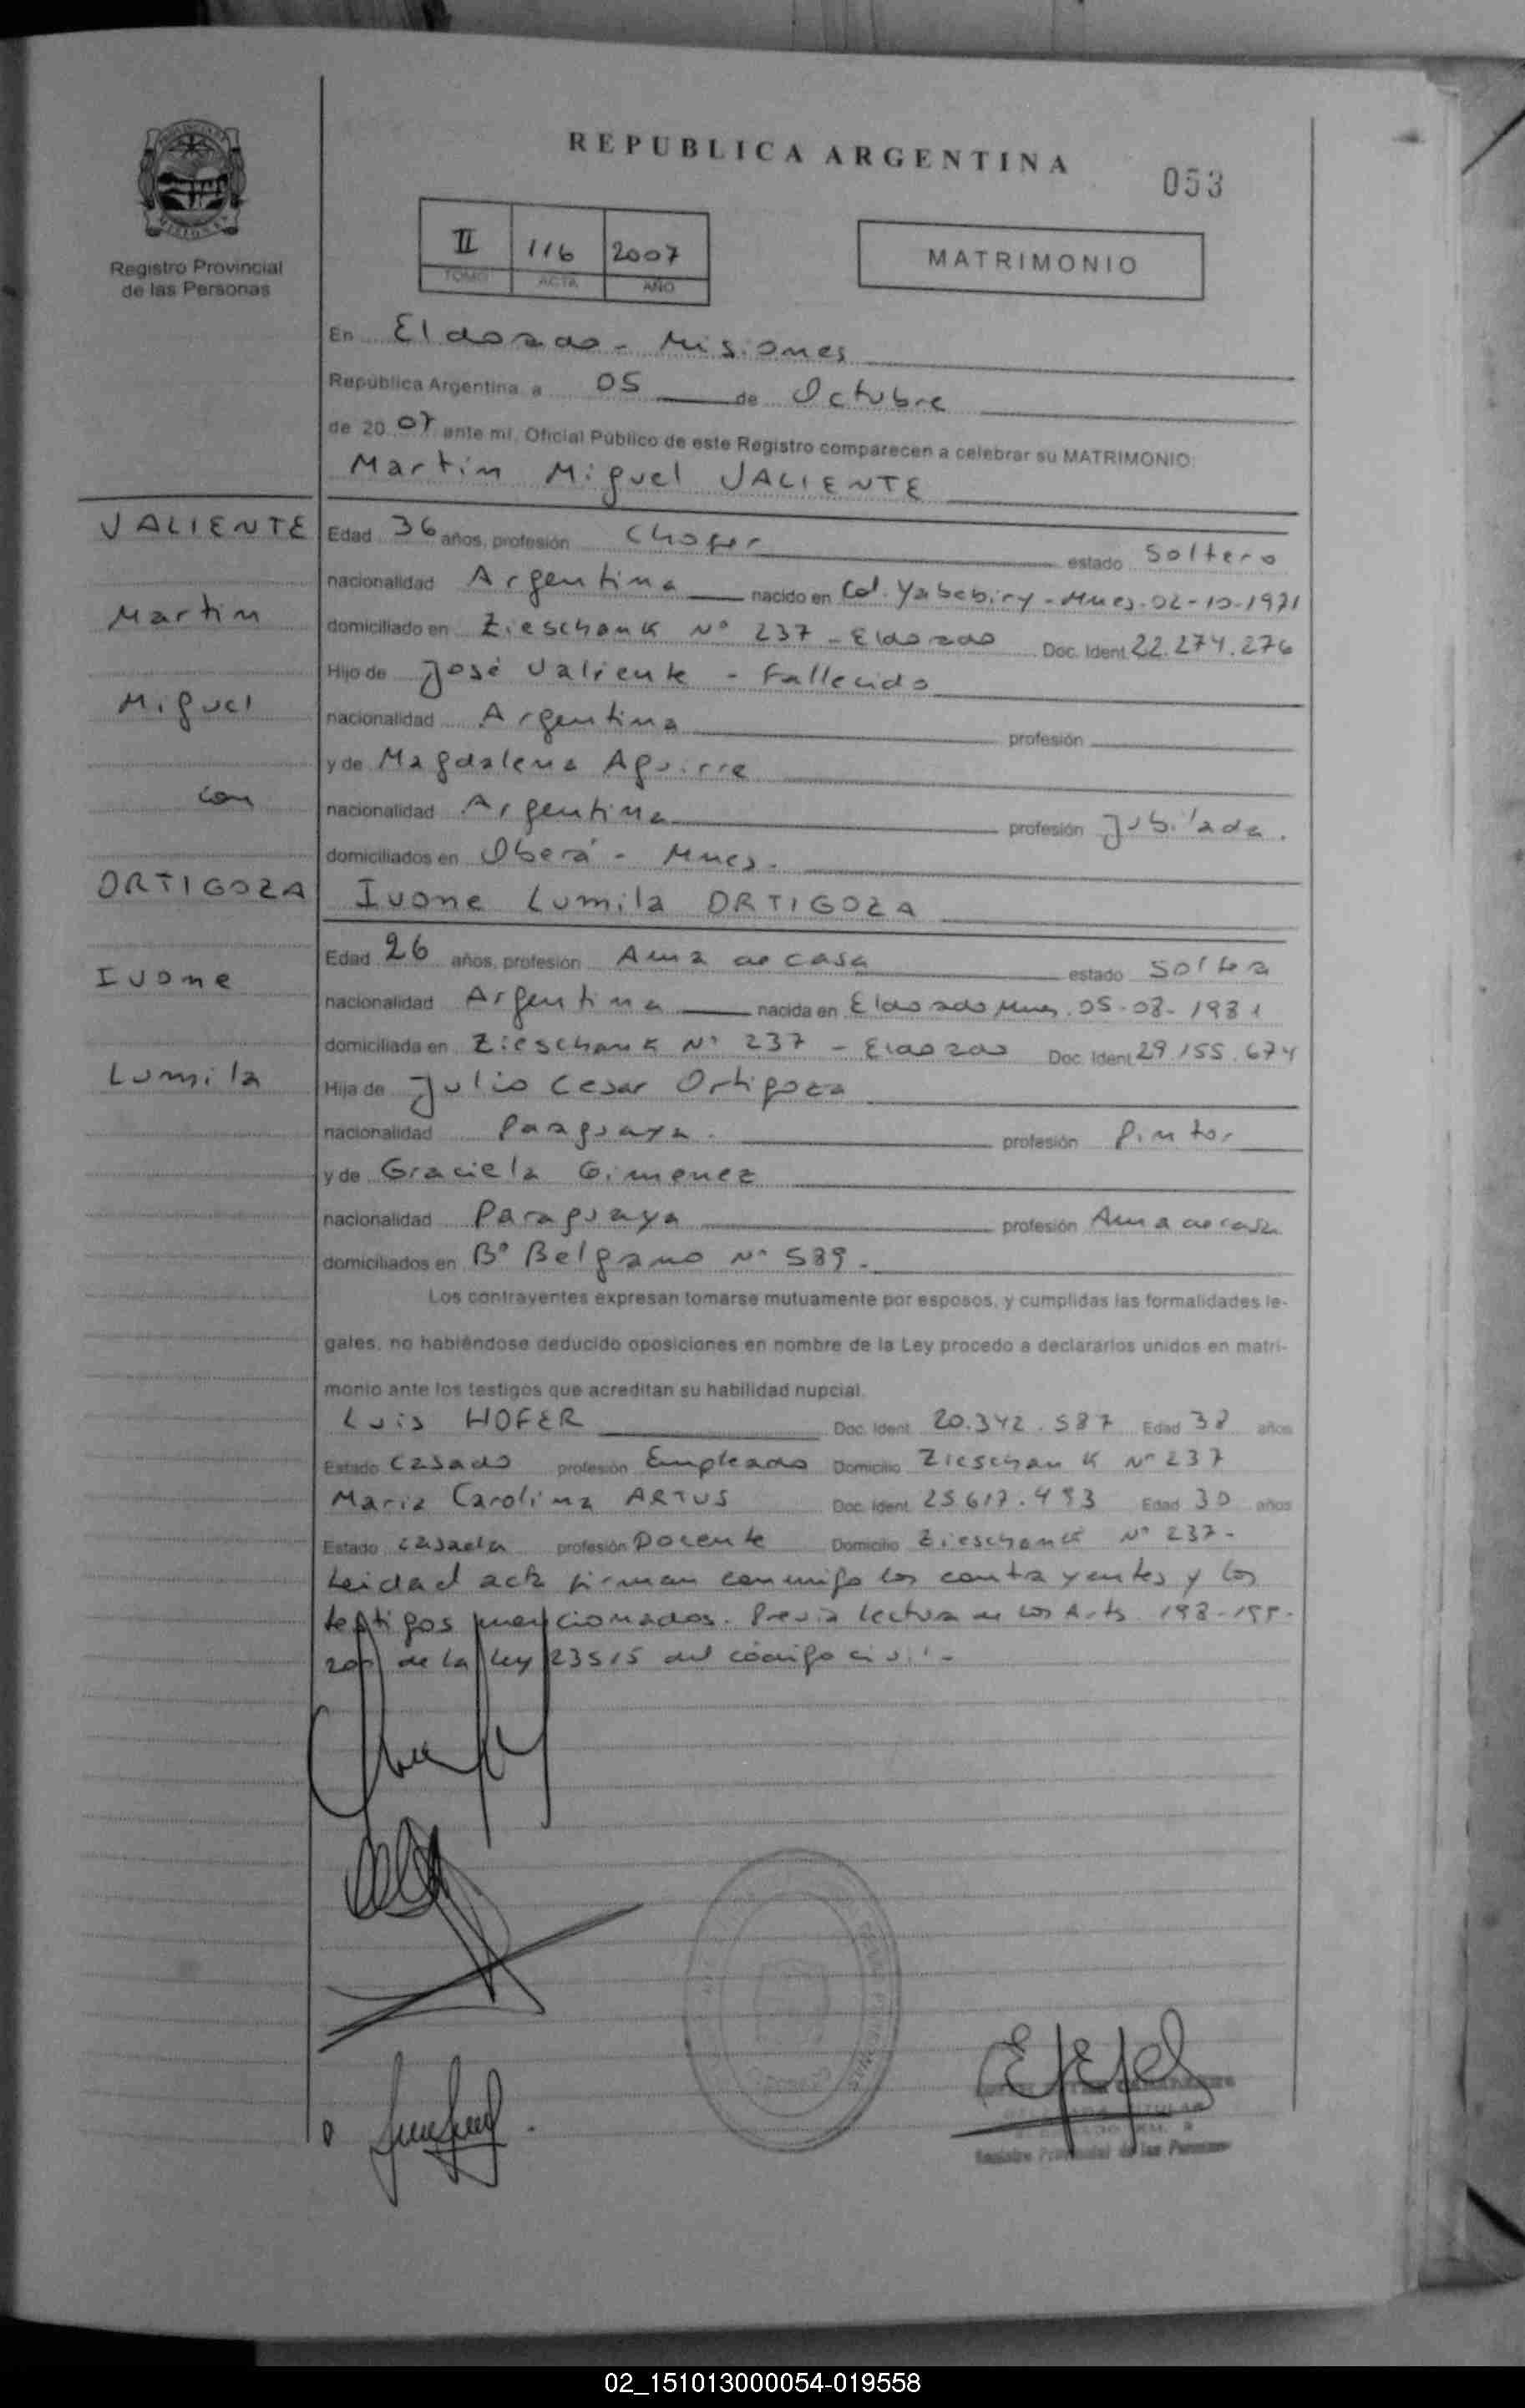 REPUBLICA ARGENTINA
053
Registro Provincial
de las Personas
II 116 2007
TOMO ACTA AÑO
MATRIMONIO
En Eldorado - Misiones
República Argentina, a 05 de Octubre
de 20 07 ante mí, Oficial Público de este Registro comparecen a celebrar su MATRIMONIO:
Martín Miguel VALIENTE
VALIENTE
Edad 36 años, profesión Chofer estado Soltero
nacionalidad Argentina nacido en Col. Yabebiry - Mnes. 02-10-1971
Martín
domiciliado en Zieschank Nº 237 - Eldorado Doc. Ident. 22.274.276
Hijo de José Valiente - Fallecido
Miguel
nacionalidad Argentina profesión
y de Magdalena Aguirre
con
nacionalidad Argentina profesión Jubilada.
domiciliados en Oberá - Mnes.
ORTIGOZA
Ivone Lumila ORTIGOZA
Edad 26 años, profesión Ama de casa estado Soltera
Ivone
nacionalidad Argentina nacida en Eldorado Mnes. 05-08-1981
domiciliada en Zieschank Nº 237 - Eldorado Doc. Ident. 29.155.674
Lumila
Hija de Julio Cesar Ortigoza
nacionalidad Paraguaya. profesión Pintor
y de Graciela Gimenez
nacionalidad Paraguaya profesión Ama de casa
domiciliados en Bº Belgrano Nº 589.
Los contrayentes expresan tomarse mutuamente por esposos, y cumplidas las formalidades le-
gales, no habiéndose deducido oposiciones en nombre de la Ley procedo a declararlos unidos en matri-
monio ante los testigos que acreditan su habilidad nupcial.
Luis HOFER Doc. Ident. 20.342.587 Edad 38 años
Estado Casado profesión Empleado Domicilio Zieschank Nº 237
Maria Carolina ARTUS Doc. Ident. 25.617.493 Edad 30 años
Estado casada profesión Docente Domicilio Zieschank Nº 237-
Leida el acta firman conmigo los contrayentes y los
testigos mencionados. Previa lectura de los Arts. 198-199-
200 de la Ley 23515 del código civil-
Registro Provincial de las Personas
02_151013000054-019558